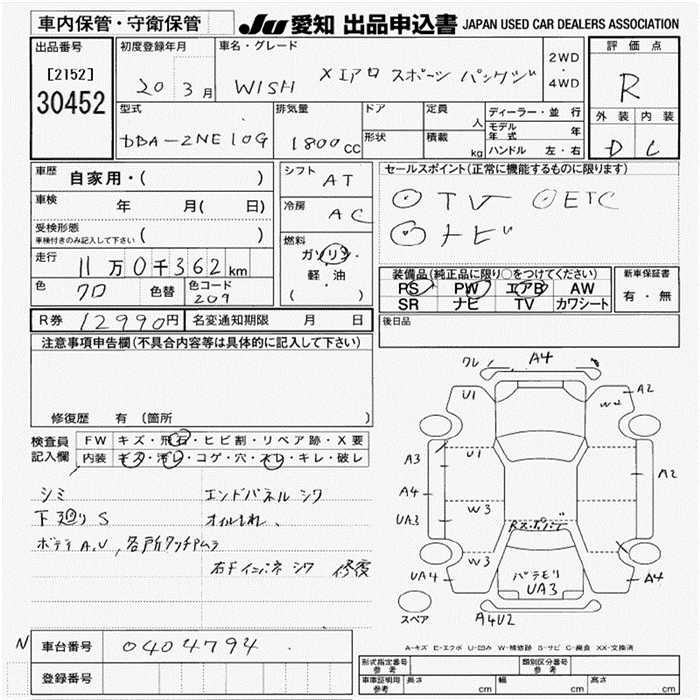 車内保管・守衛保管
JU 愛知 出品申込書 JAPAN USED CAR DEALERS ASSOCIATION
出品番号
[2152]
30452
初度登録年月
20 3月
車名・グレード
WISH Xエアロ スポーツ パッケジ
2WD
・
4WD
評価点
R
外装 内装
D C
型式
DBA-ZNE10G
排気量
1800CC
ドア
形状
定員
人
積載
kg
ディーラー・並行
モデル年式 年
ハンドル 左・右
車歴
自家用・( )
車検
年 月( 日)
受検形態
車検付きのみ記入して下さい ( )
走行
11万0千362km
色
クロ
色替
色コード
209
シフト
AT
冷房
AC
燃料
ガソリン
軽油
( )
セールスポイント(正常に機能するものに限ります)
○TV ○ETC
○ナビ
装備品(純正品に限り○をつけてください)
PS PW エアB AW
SR ナビ TV カワシート
新車保証書
有・無
R券 12990円
名変通知期限 月 日
後日品
注意事項申告欄(不具合内容等は具体的に記入して下さい)
修復歴 有 (箇所 )
検査員
記入欄
FW キズ・飛石・ヒビ割・リペア跡・X要
内装 キズ・汚レ・コゲ・穴・スレ・キレ・破レ
シミ エンドパネル シワ
下廻りS オイルもれ、
ボディA,U, 各所タッチムラ
右Fインパネ シワ 修復
ワレ A4
U1
W2
A2
A3
U1
A2
A4
UA3
W3
W3
UA4
バラモリ
UA3
A4
A4U2
スペア
A-キズ E-エクボ U-凹み W-補修跡 S-サビ C-腐食 XX-交換済
N 車台番号 0404794
登録番号
形式指定番号
参考
類別区分番号
参考
車庫証明用
参考
長さ cm
幅 cm
高さ cm